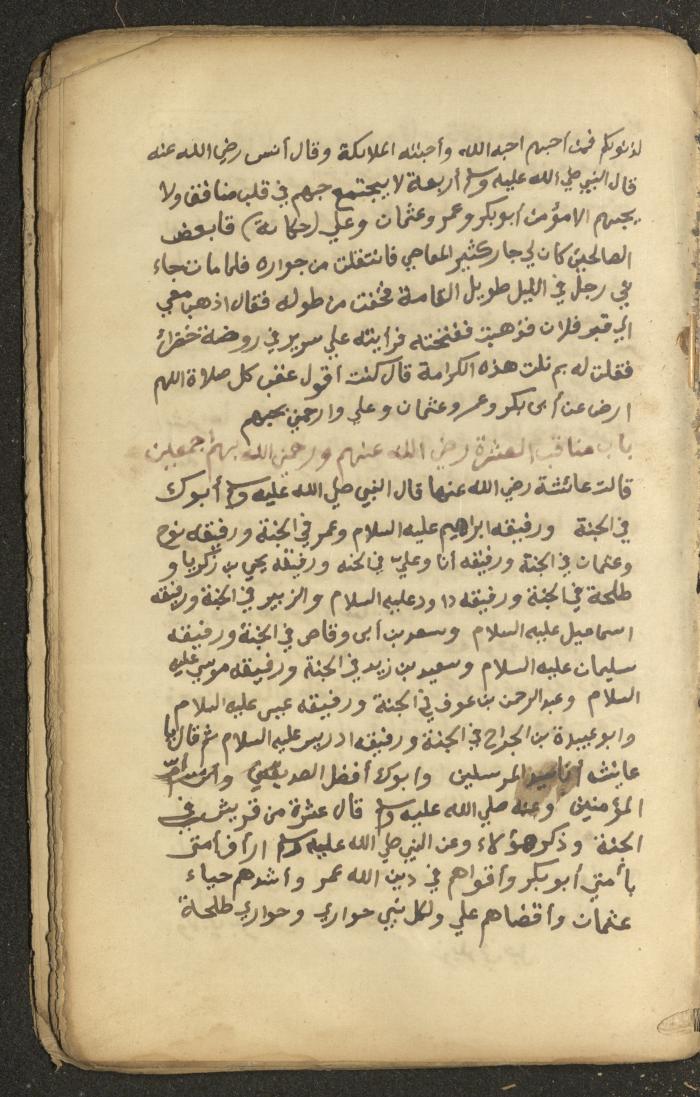 لذنوبكم فمن أحبهم احبه الله وأحبته الملائكة وقال أنس رضي الله عنه
قال النبي صلي الله عليه وسلم أربعة لا يجتمع حبهم في قلب منافق ولا
يحبهم الا مؤمن أبو بكر وعمر وعثمان وعلي (حكاية) قا بعض
الصالحين كان لي جار كثير المعاصي فانتقلت من جواره فلما مات جاء
ني رجل في الليل طويل القامة فخفت من طوله فقال اذهب معي
الي قبر فلان فذهبت ففتحته فرأيته علي سرير في روضة خضراء
فقلت له بم نلت هذه الكرامة قال كنت أقول عقب كل صلاة اللهم
ارض عن أبي بكر وعمر وعثمان وعلي وارحمني بحبهم
باب مناقب العشرة رضي الله عنهم ورحمن الله بهم أجمعين
قالت عائشة رضي الله عنها قال النبي صلي الله عليه وسلم أبوك
في الجنة ورفيقه ابراهيم عليه السلام وعمر في الجنة ورفيقه نوح
وعثمان في الجنة ورفيقه أنا وعلي في الجنه ورفيقه يحي بن زكريا و
طلحة في الجنة ورفيقه داود عليه السلام والزبير في الجنة ورفيقه
اسماعيل عليه السلام وسعد بن أبي وقاص في الجنة ورفيقه
سليمان عليه السلام وسعيد بن زيد في الجنة ورفيقه موسي عليه
السلام وعبد الرحمن بن عوف في الجنة ورفيقه عيسى عليه السلام
وابو عبيدة بن الجراح في الجنة ورفيقه ادريس عليه السلام ثم قال يا
عايشة أنا سيد المرسلين وابوك أفضل الصديقين وأنت أم
المؤمنين وعنه صلي الله عليه وسلم قال عشرة من قريش في
الجنة وذكر هؤلاء وعن النبي صلي الله عليه وسلم ارأف أمتى
بأمتي أبو بكر وأقواهم في دين الله عمر وأشدهم حياء
عثمان وأقضاهم علي ولكل نبي حواري وحواري طلحة